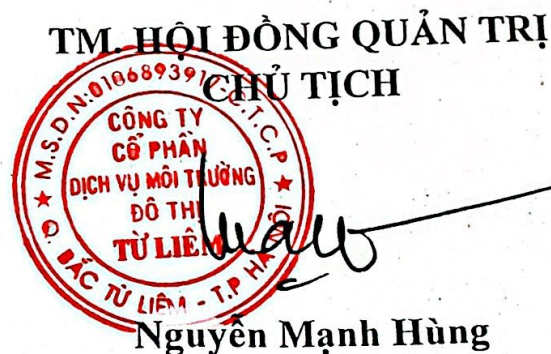 TM. HỘI ĐỒNG QUẢN TRỊ
CHỦ TỊCH
M.S.D.N:0106893917-C.T.C.P
CÔNG TY
CỔ PHẦN
DỊCH VỤ MÔI TRƯỜNG
ĐÔ THỊ
TỪ LIÊM
Q. BẮC TỪ LIÊM - T.P HÀ NỘI
Nguyễn Mạnh Hùng